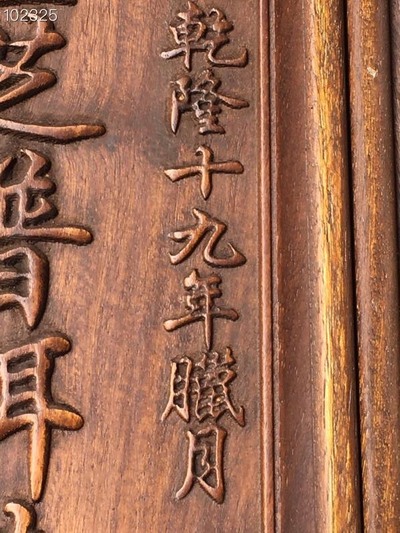 102325
乾隆十九年臘月
普耳